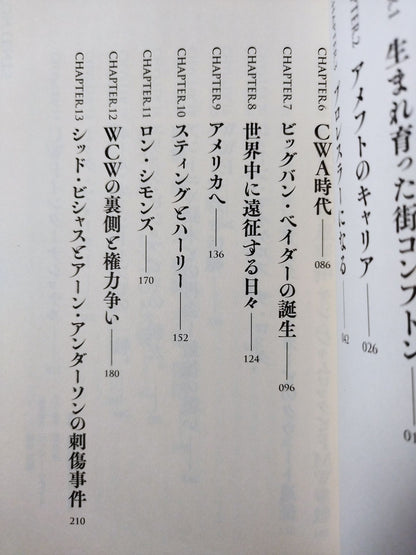 生まれ育った街コンプトン 01
CHAPTER.2 アメフトのキャリア 026
プロレスラーになる 042
CHAPTER.6 CWA時代 086
CHAPTER.7 ビッグバン・ベイダーの誕生 096
CHAPTER.8 世界中に遠征する日々 124
CHAPTER.9 アメリカへ 136
CHAPTER.10 スティングとハーリー 152
CHAPTER.11 ロン・シモンズ 170
CHAPTER.12 WCWの裏側と権力争い 180
CHAPTER.13 シッド・ビシャスとアーン・アンダーソンの刺傷事件 210